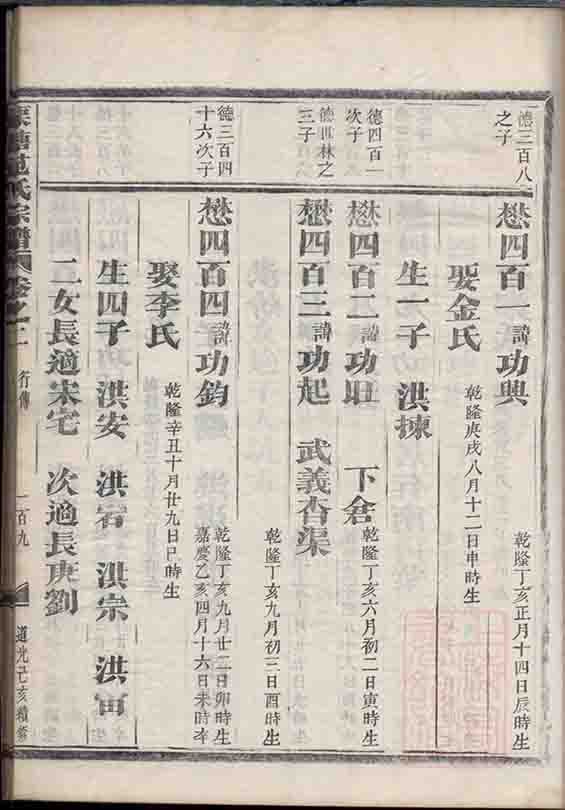 德三百八
之子
懋四百一諱功興
乾隆丁亥正月十四日辰時生
娶金氏
乾隆庚戌八月十二日申時生
生一子 洪揀
德四百一
次子
懋四百二諱功旺 下倉
乾隆丁亥六月初二日寅時生
德世林之
三子
懋四百三諱功起 武義杏渠
乾隆丁亥九月初三日酉時生
德三百四
十六次子
懋四百四諱功鈞
乾隆丁亥九月廿二日卯時生
嘉慶乙亥四月十六日未時卒
娶李氏
乾隆辛丑十月廿九日巳時生
生四子 洪安 洪宕 洪崇 洪富
二女長適宋宅 次適長庚劉
氏宗譜 卷之二 行傳 一百九 道光己亥續修